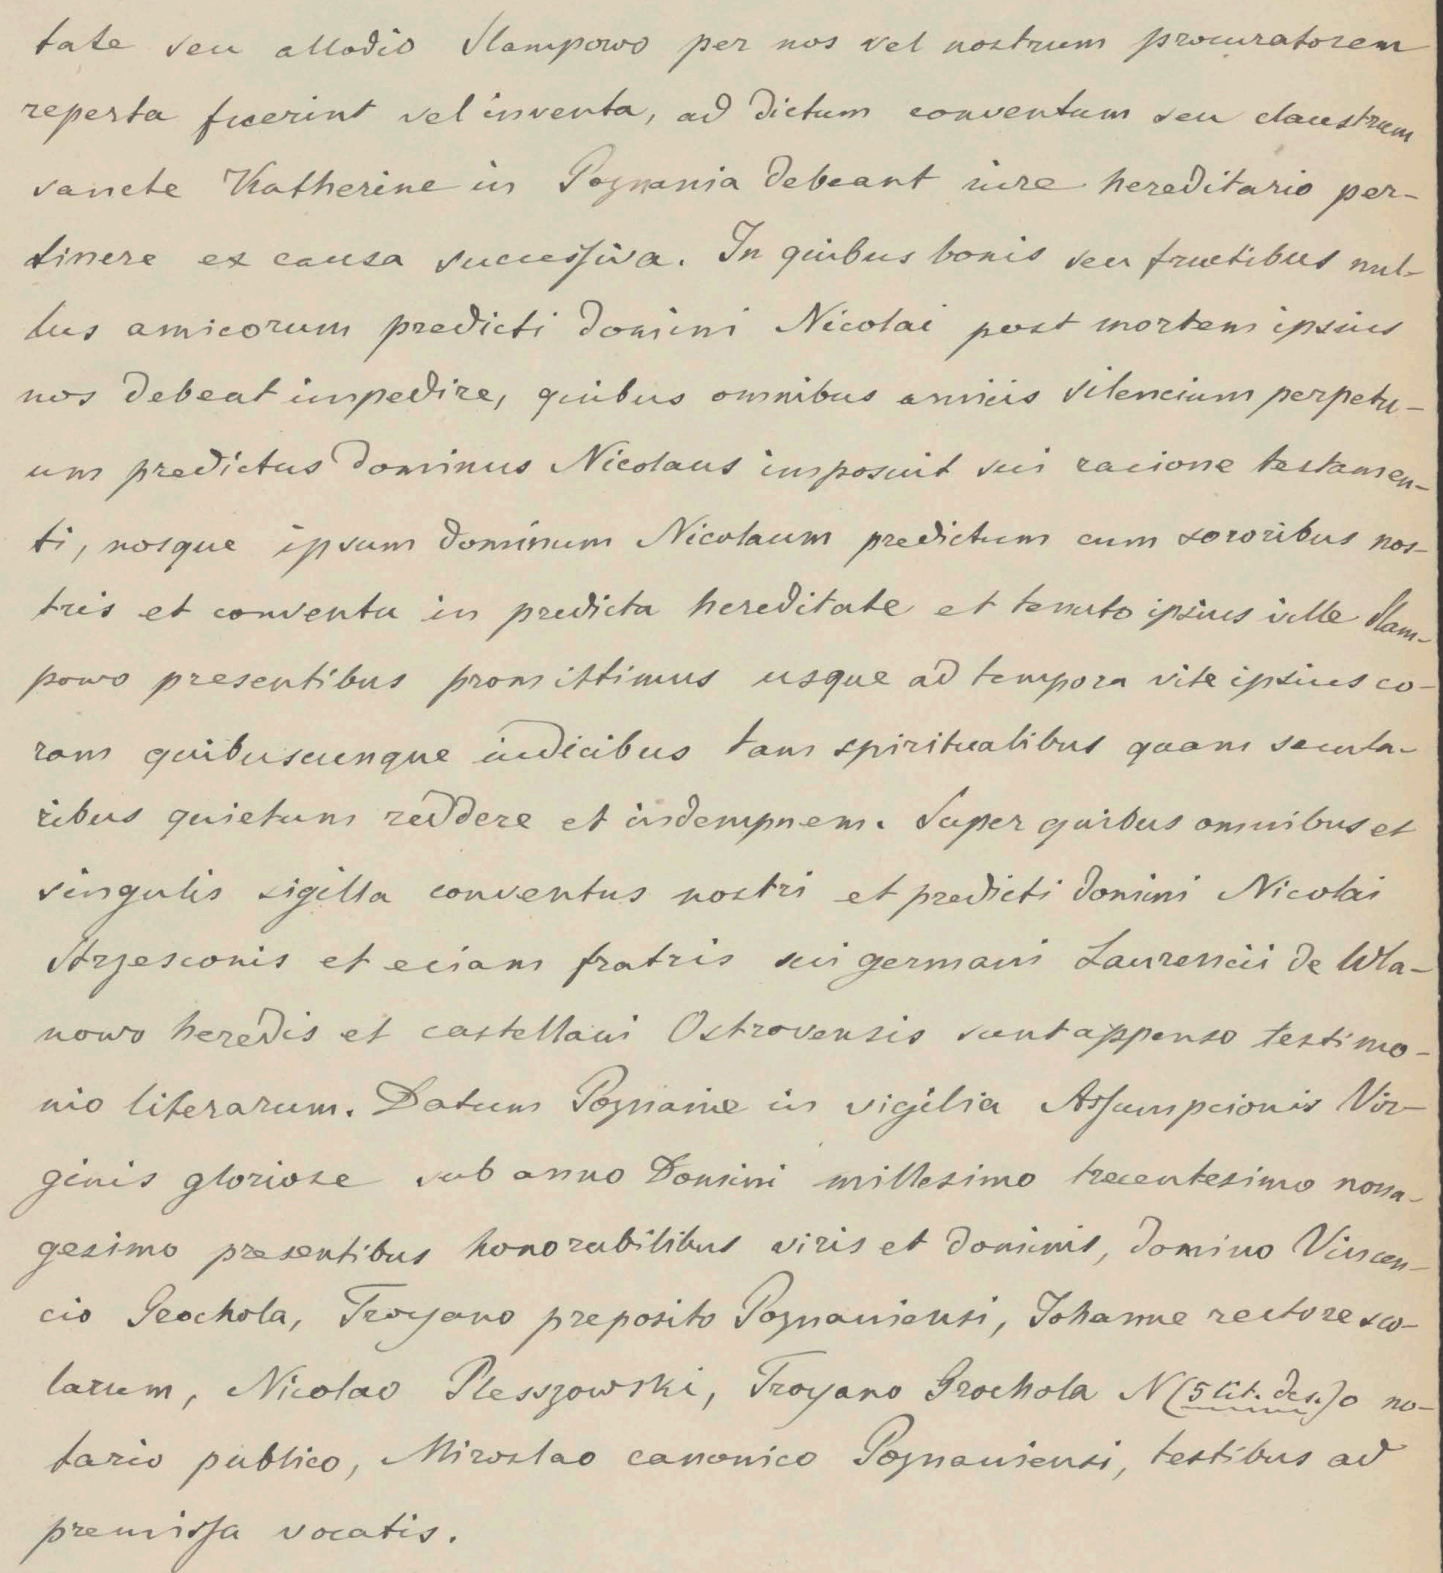 tate seu allodio Slampowo per nos vel nostrum procuratorem
reperta fuerint vel inventa, ad dictum conventum seu claustrum
sancte Katherine in Poznania debeant iure hereditario per-
tinere ex causa successiva. In quibus bonis seu fructibus nul-
lus amicorum predicti domini Nicolai post mortem ipsius
nos debeat impedire, quibus omnibus amicis silencium perpetu-
um predictus dominus Nicolaus imposuit sui racione testamen-
ti, nosque ipsum dominum Nicolaum predictum cum sororibus nos-
tris et conventu in predicta hereditate et tenuto ipsius ville Slam-
powo presentibus promittimus usque ad tempora vite ipsius co-
ram quibuscunque iudicibus tam spiritualibus quam secula-
ribus quietum reddere et indempnem. Super quibus omnibus et
singulis sigilla conventus nostri et predicti domini Nicolai
Strzesconis et eciam fratris sui germani Laurencii de Wla-
nowo heredis et castellani Ostrovensis sunt appenso testimo-
nio literarum. Datum Poznanie in vigilia Assumpcionis Vir-
ginis gloriose sub anno Domini millesimo trecentesimo nona-
gesimo presentibus honorabilibus viris et dominis, domino Vincen-
cio Grochola, Troyano preposito Poznaniensi, Johanne rectore sco-
larum, Nicolao Plesszowski, Troyano Grochola N(5 lit. des.)o no-
tario publico, Miroslao canonico Poznaniensi, testibus ad
premissa vocatis.